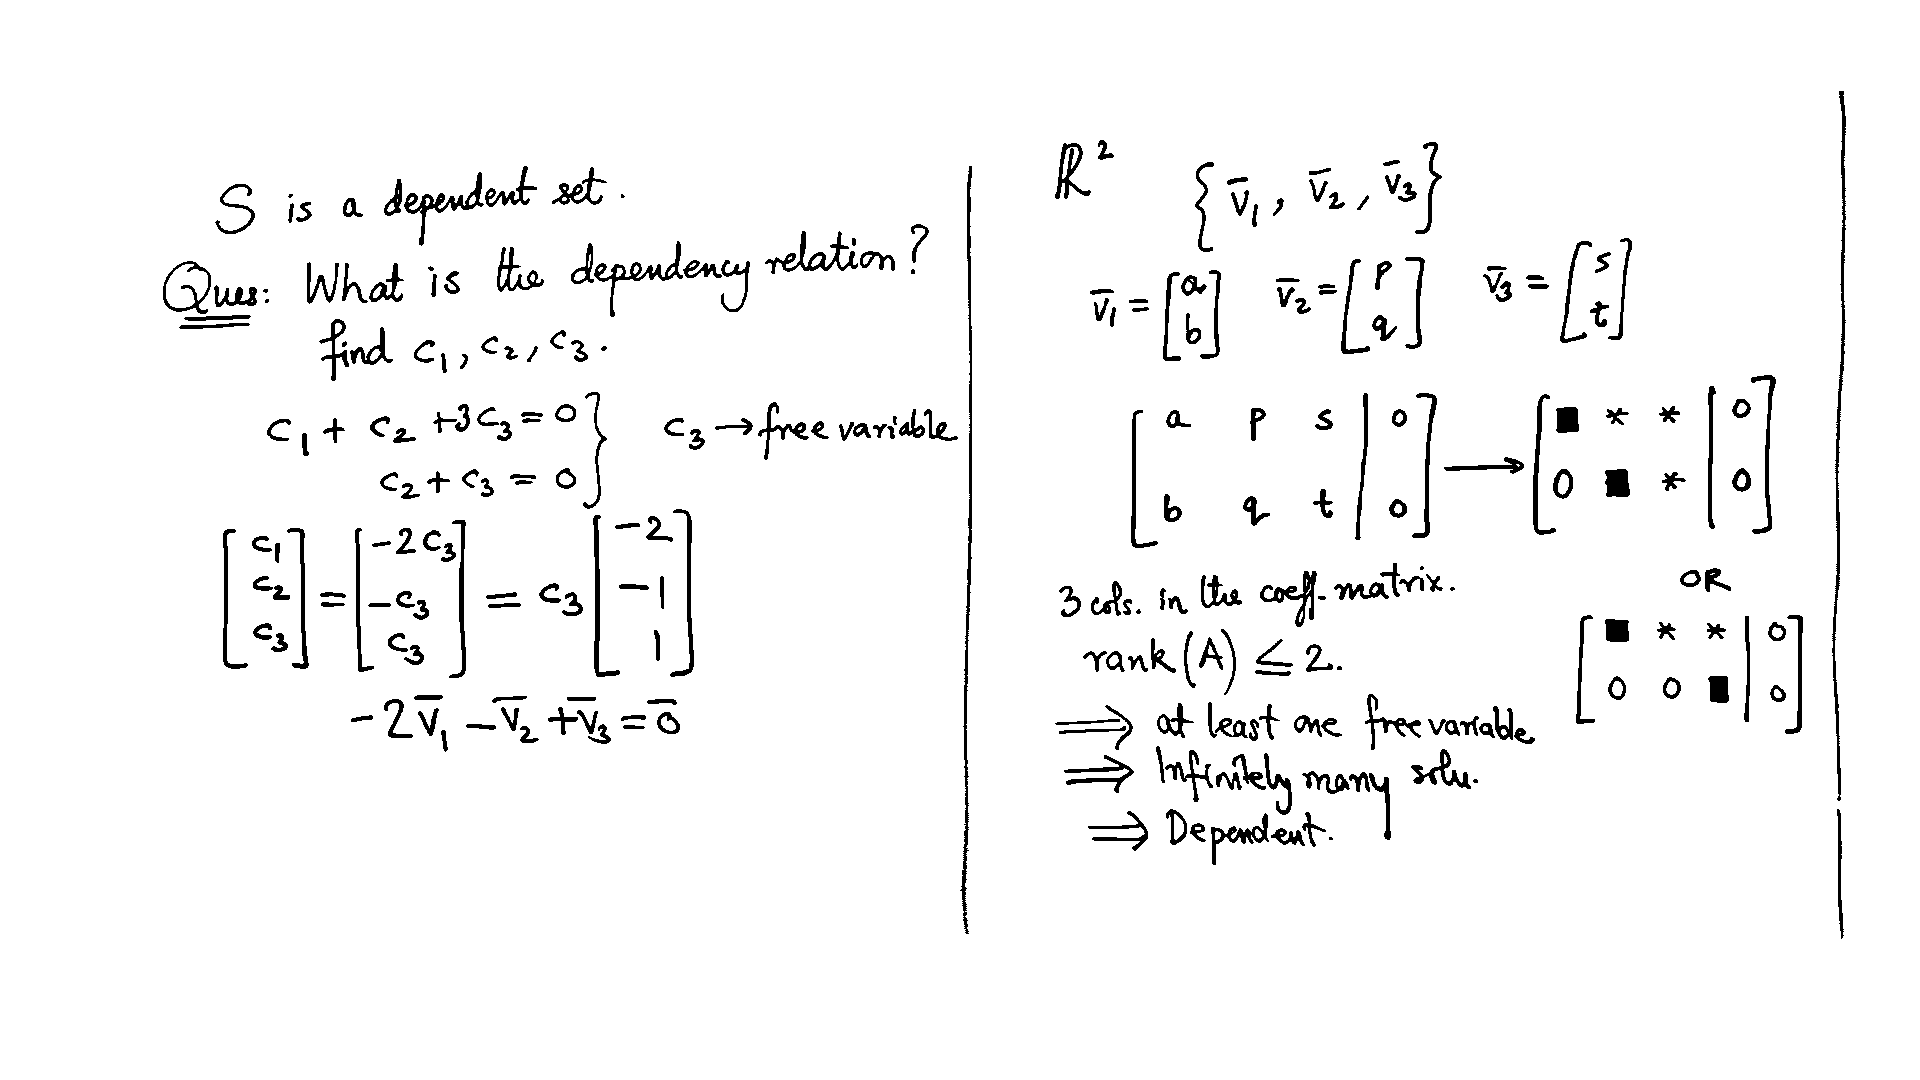 S is a dependent set.
Ques: What is the dependency relation?
find c₁, c₂, c₃.
c₁ + c₂ + 3c₃ = 0 } c₃ → free variable
c₂ + c₃ = 0
[c₁ c₂ c₃] = [-2c₃ -c₃ c₃] = c₃ [-2 -1 1]
-2v̄₁ - v̄₂ + v̄₃ = 0̄
ℝ² {v̄₁, v̄₂, v̄₃}
v̄₁ = [a b] v̄₂ = [p q] v̄₃ = [s t]
[a p s | 0] → [■ * * | 0]
[b q t | 0] [0 ■ * | 0]
OR
[■ * * | 0]
[0 0 ■ | 0]
3 cols. in the coeff. matrix.
rank(A) ≤ 2.
⟹ at least one free variable
⟹ Infinitely many solu.
⟹ Dependent.